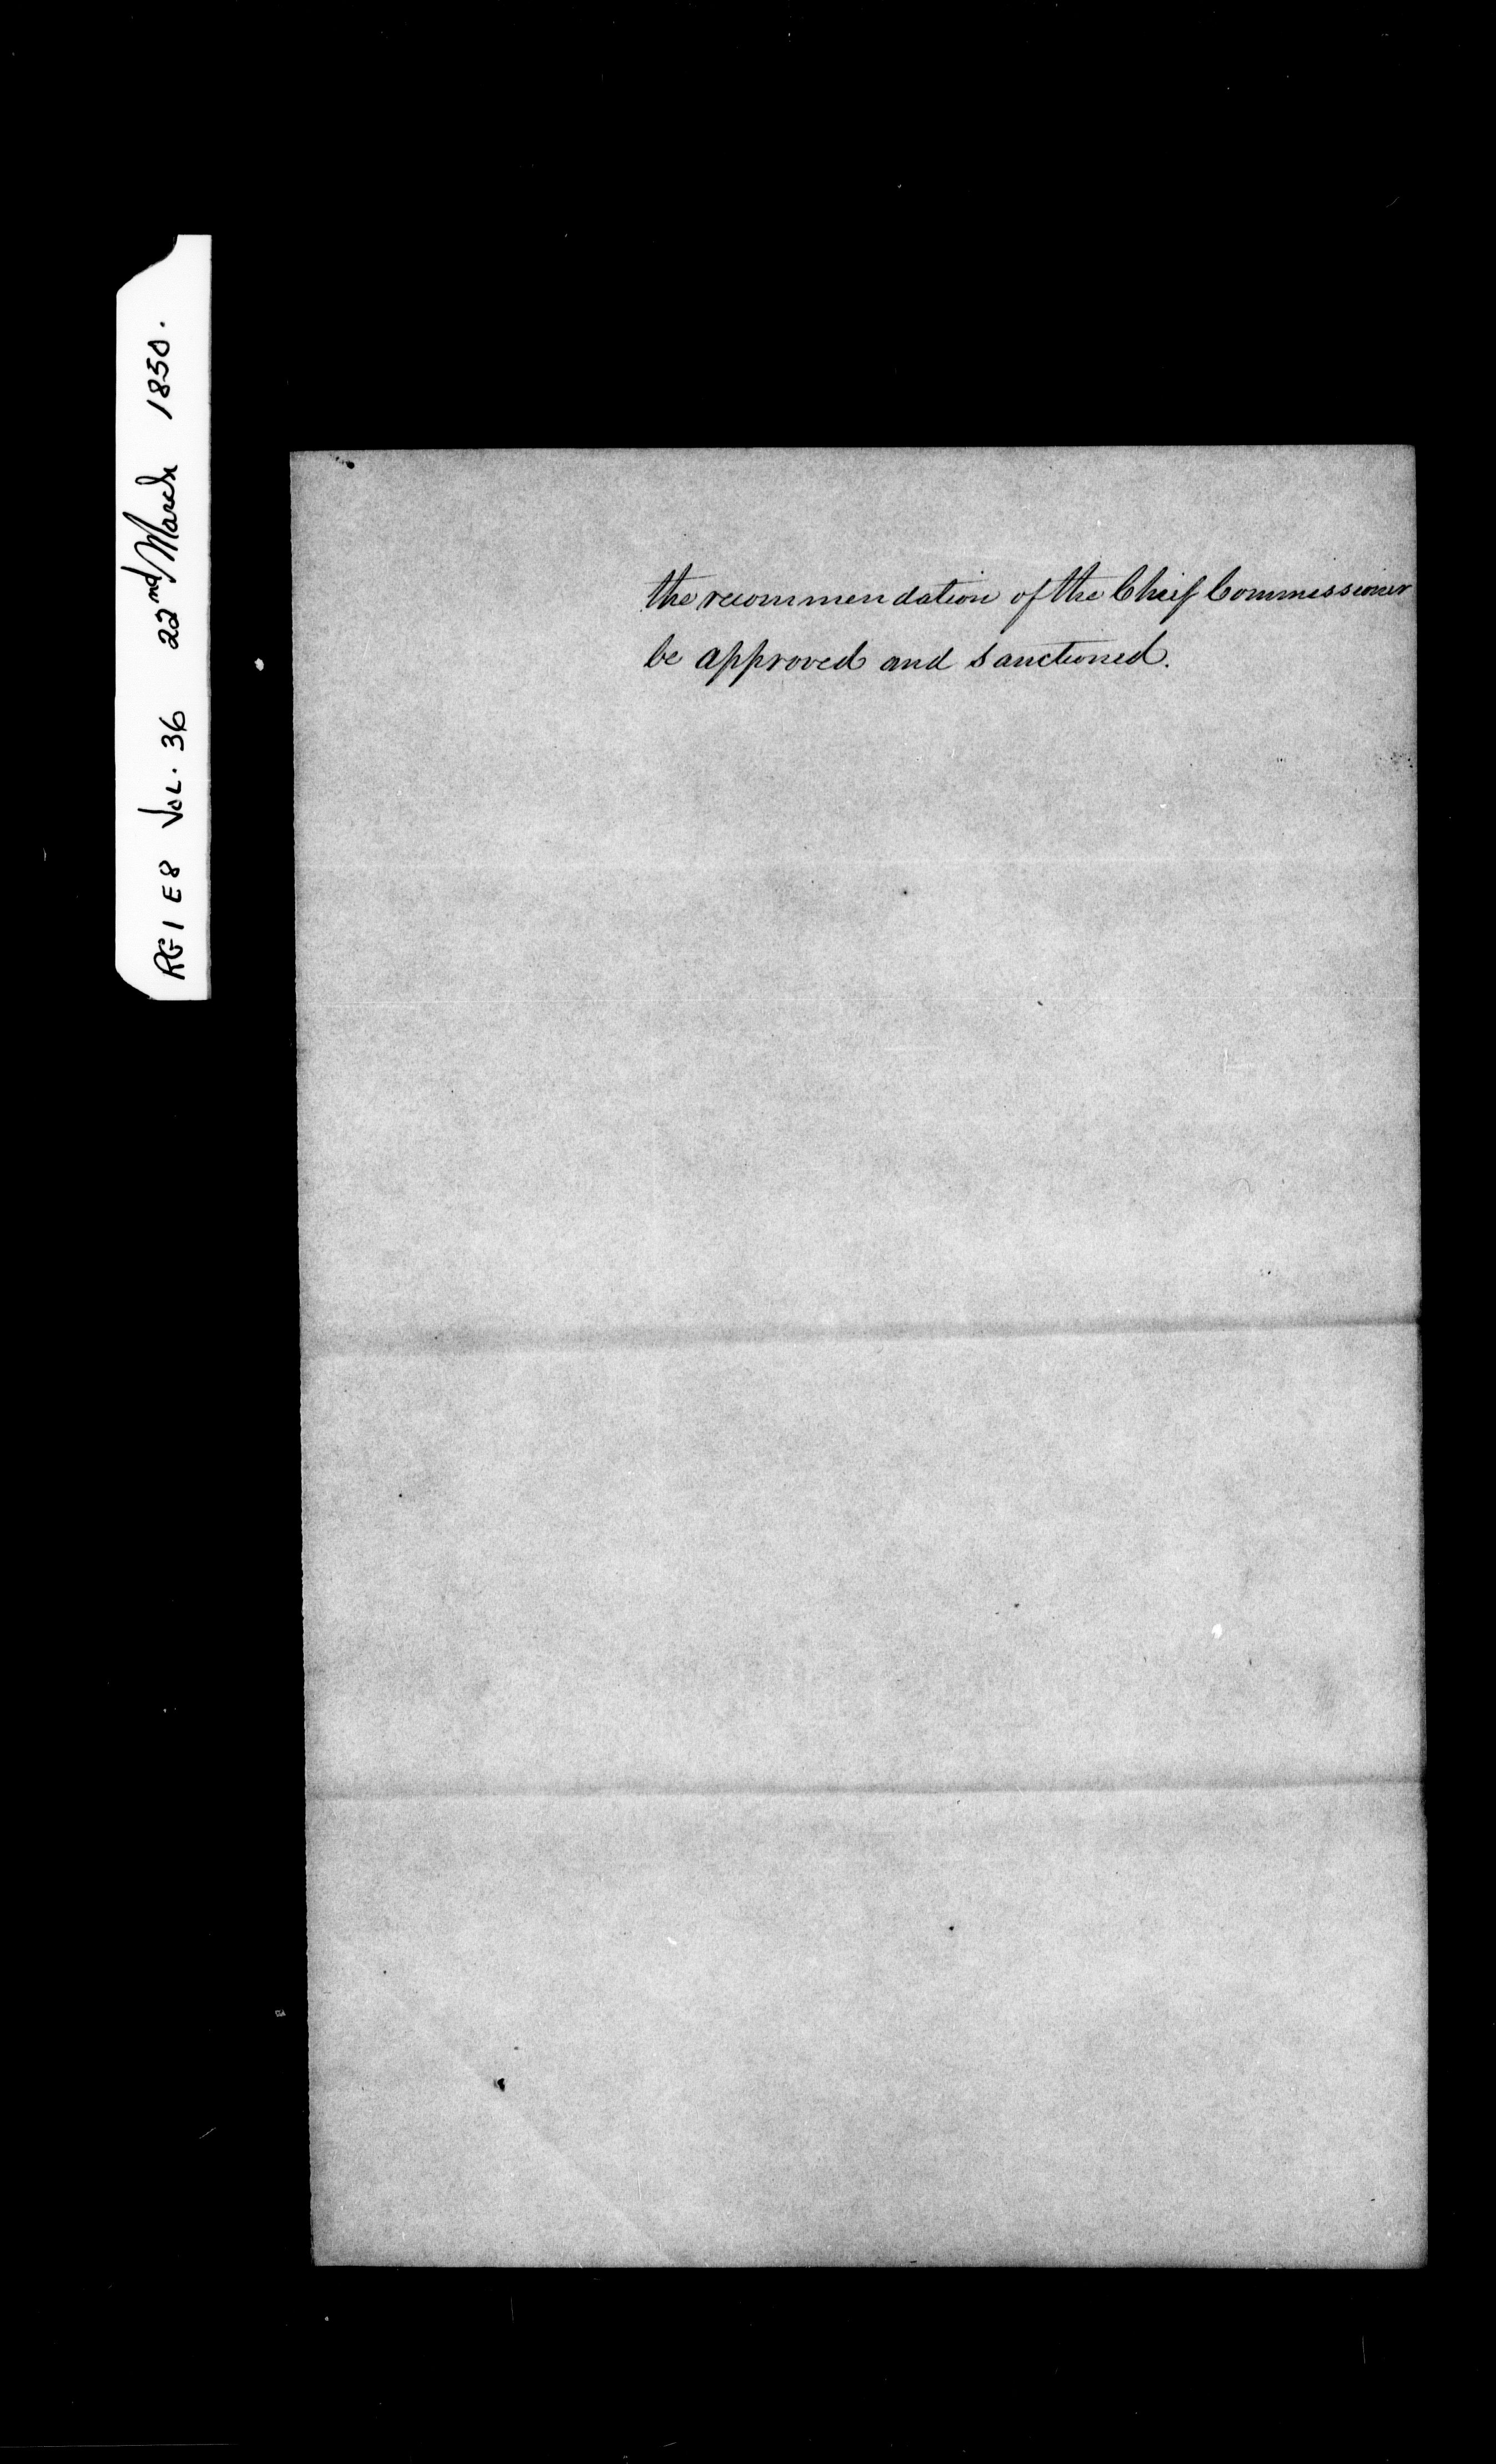 RG1 E8 VOL. 36 22nd March 1850.
the recommendation of the Chief Commissioner
be approved and sanctioned.